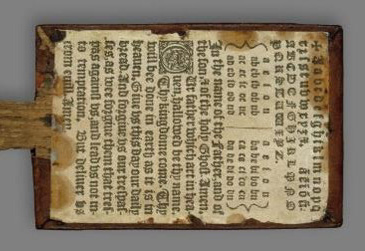 ✠ A a b c d e f g h i k l m n o p q
r ſ s t u v w x y z &. a e i o u
A B C D E F G H I K L M N O P Q
R S T U W X Y Z.
a e i o u a e i o u
ab eb ib ob ub ba be bi bo bu
ac ec ic oc uc ca ce ci co cu
ad ed id od ud da de di do du
In the name of the Father, and of
the Son, & of the holy Ghost. Amen.
OUr father which art in hea-
uen, hallowed be thy name.
Thy kingdome come. Thy
will bee done in earth as it is in
heauen. Giue vs this day our daily
bread. And forgiue vs our trespas-
ses, as wee forgiue them that tres-
pas against vs. And lead vs not in-
to temptation, But deliuer vs
from euill. Amen.